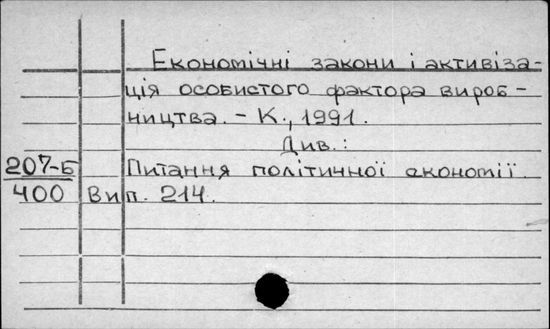 Економічні закони і активіза-
ція особистого фактора вироб-
ництва. – К., 1991.
Див.:
207-Б Питання політичної економії.
400 Вип. 214.